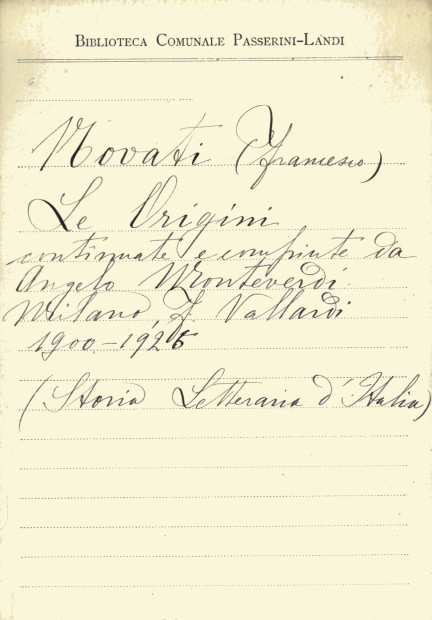 BIBLIOTECA COMUNALE PASSERINI-LANDI
Novati (Francesco)
Le Origini
continuate e compiute da
Angelo Monteverdi
Milano, F. Vallardi
1900-1926
(Storia Letteraria d'Italia)